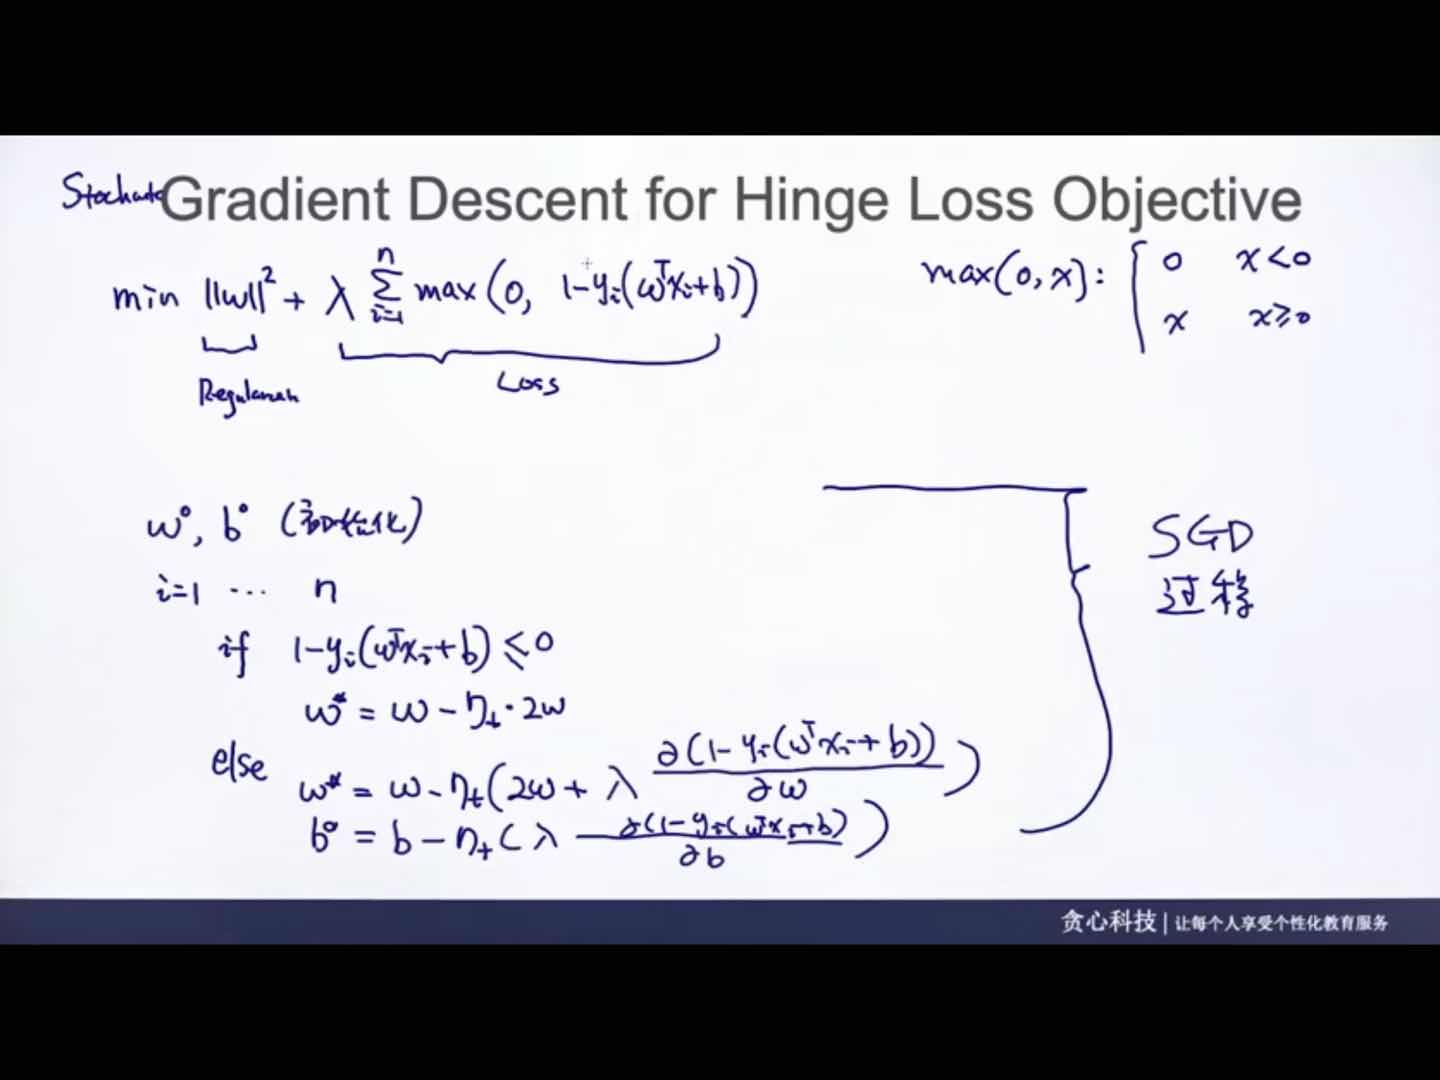 Stochastic Gradient Descent for Hinge Loss Objective
min ||w||² + λ Σ_{i=1}^{n} max(0, 1-yᵢ(wᵀxᵢ+b))
max(0,x): { 0 x<0
x x≥0
Loss
w°, b° (初始化)
i=1 ... n
if 1-yᵢ(wᵀxᵢ+b) ≤0
w* = w - ηₜ·2w
else w* = w - ηₜ(2w + λ ∂(1-yᵢ(wᵀxᵢ+b))/∂w)
b° = b - ηₜ(λ ∂(1-yᵢ(wᵀxᵢ+b))/∂b)
SGD
过程
贪心科技 | 让每个人享受个性化教育服务